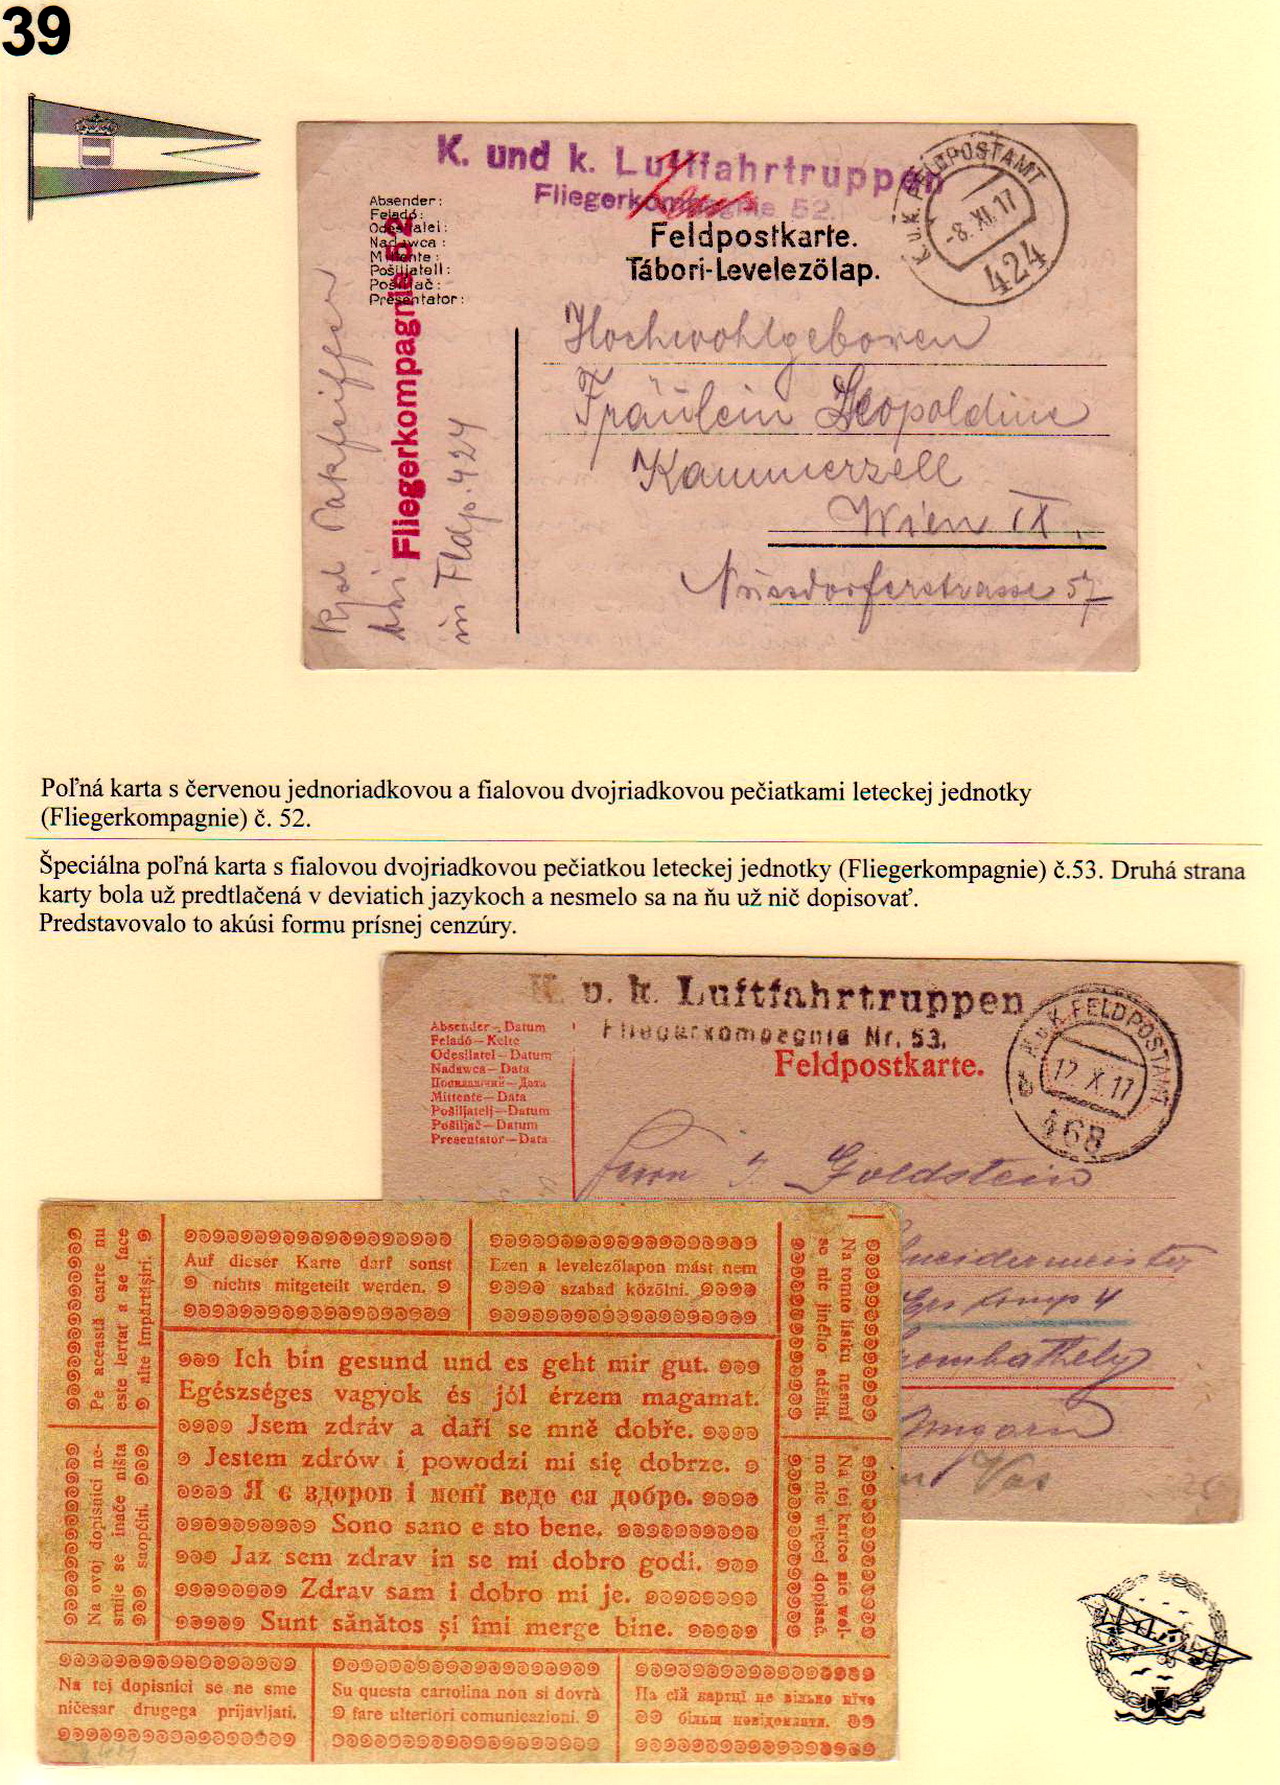 39
K. und k. Luftfahrtruppen
Fliegerkompagnie 52.
K.u.K. FELDPOSTAMT
-8. XI. 17
424
Absender:
Feladó:
Odesílatel:
Nadawca:
Mittente:
Pošiljatelj:
Pošiljač:
Presentator:
Feldpostkarte.
Tábori-Levelezőlap.
Fliegerkompagnie 52
bei
in Fldp. 424
Hochwohlgeboren
Fräulein Leopoldine
Kammerzell
Wien IX.
Nussdorferstrasse 57
Poľná karta s červenou jednoriadkovou a fialovou dvojriadkovou pečiatkami leteckej jednotky
(Fliegerkompagnie) č. 52.
Špeciálna poľná karta s fialovou dvojriadkovou pečiatkou leteckej jednotky (Fliegerkompagnie) č.53. Druhá strana
karty bola už predtlačená v deviatich jazykoch a nesmelo sa na ňu už nič dopisovať.
Predstavovalo to akúsi formu prísnej cenzúry.
K. u. k. Luftfahrtruppen
Fliegerkompagnie Nr. 53.
K.u.K. FELDPOSTAMT
12. X. 17
468
Absender – Datum
Feladó – Kelte
Odesílatel – Datum
Nadawca – Data
Посилаючий – Дата
Mittente – Data
Pošiljatelj – Datum
Pošiljač – Datum
Presentator – Data
Feldpostkarte.
Herrn J. Goldstein
Ungarn
Vas
Pe această carte nu
este iertat a se face
alte împărtășiri.
Auf dieser Karte darf sonst
nichts mitgeteilt werden.
Ezen a levelezőlapon mást nem
szabad közölni.
Na tomto lístku nesmí
se nic jiného sděliti.
Ich bin gesund und es geht mir gut.
Egészséges vagyok és jól érzem magamat.
Jsem zdráv a daří se mně dobře.
Jestem zdrów i powodzi mi się dobrze.
Я є здоров і менї веде ся добре.
Sono sano e sto bene.
Jaz sem zdrav in se mi dobro godi.
Zdrav sam i dobro mi je.
Sunt sănătos și îmi merge bine.
Na ovoj dopisnici ne-
smije se inače ništa
saopćiti.
Na tej kartce nie wol-
no nic więcej dopisać.
Na tej dopisnici se ne sme
ničesar drugega prijavljati.
Su questa cartolina non si dovrà
fare ulteriori comunicazioni.
На сїй картцї не вільно нїчо
більш повідомляти.